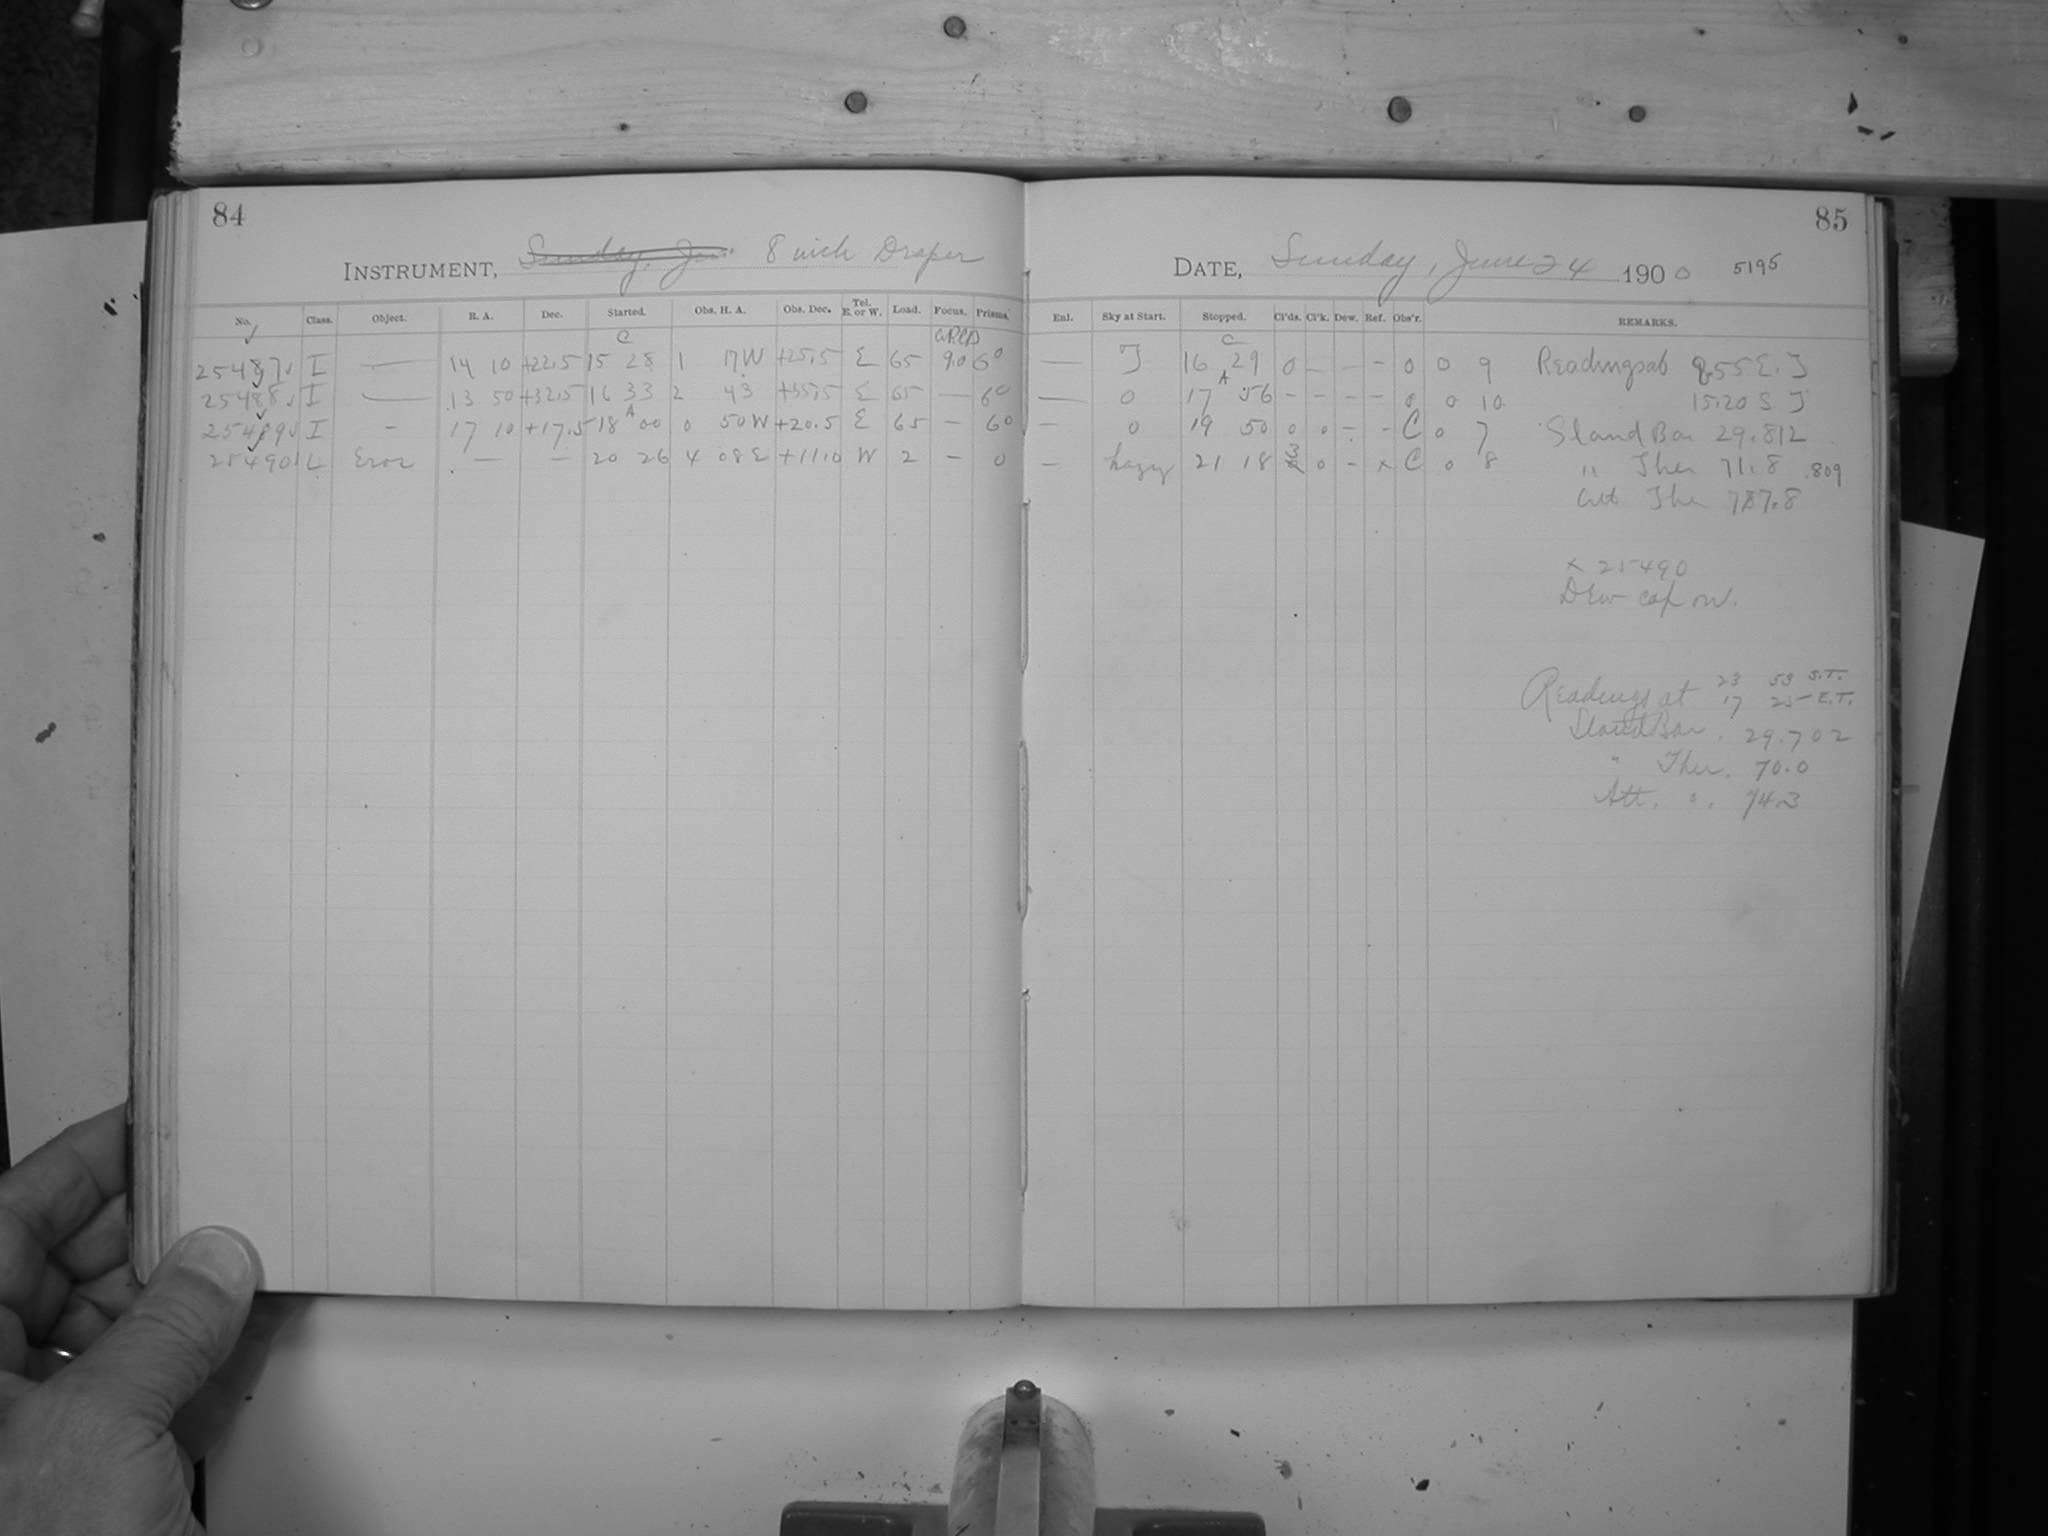 84
INSTRUMENT, Sunday, Jun 8 inch Draper
No. Class. Object. R. A. Dec. Started. Obs. H. A. Obs. Dec. Tel. E. or W. Load. Focus. Prisms.
25487 I — 14 10 +22.5 15 28 1 17 W +25.5 E 65 9.0 6°
25488 I — 13 50 +32.5 16 33 2 43 +35.5 E 65 — 6°
25489 I - 17 10 +17.5 18 00 0 50 W +20.5 E 65 - 6°
25490 L Eros — — 20 26 4 08 E +11.0 W 2 - 0
85
DATE, Sunday, June 24 1900 5196
Enl. Sky at Start. Stopped. Cl'ds. Cl'k. Dew. Ref. Obs'r. REMARKS.
— J 16 29 0 - - - 0 0 9 Readings at 8.55 E. J
— 0 17 56 - - - - 0 0 10 15.20 S J
— 0 19 50 0 0 - - C 0 7 Stand Bar 29.812
— hazy 21 18 3 0 - x C 0 8 " Ther 71.8 .809
Att Ther 77.8
x 25490
Dew cap on.
Readings at 23 53 S.T.
17 25 E.T.
Stand Bar. 29.702
" Ther. 70.0
Att. ". 74.3